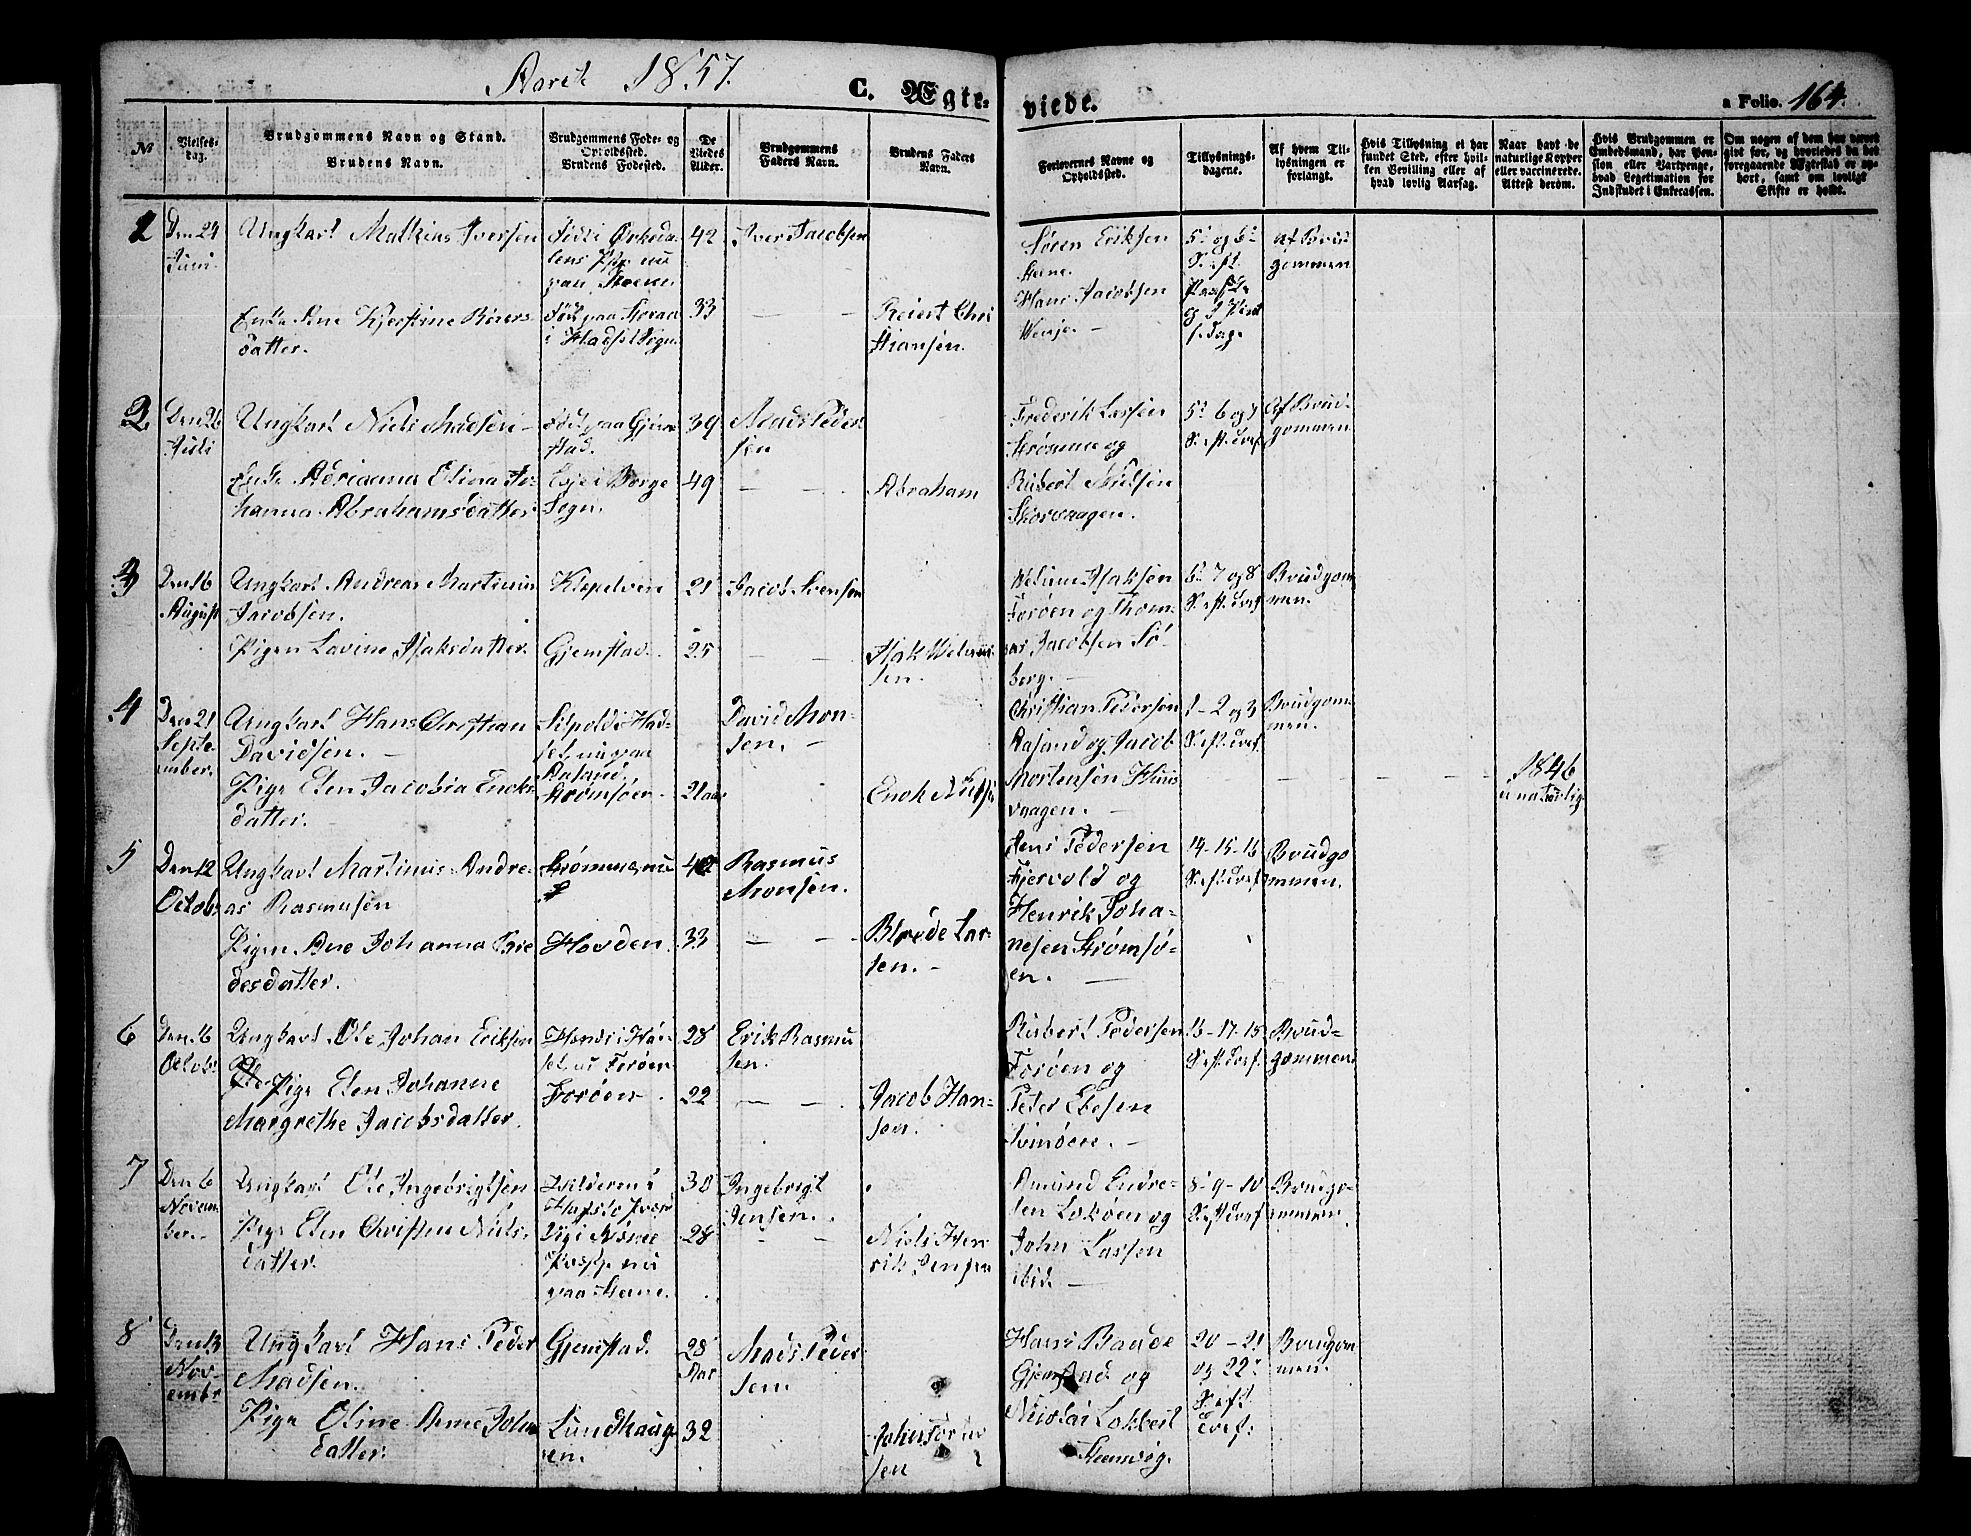 Aaret 1857.
C. Ægte-
viede.
a Folio. 164.
№
Vielses-
dag.
Brudgommens Navn og Stand.
Brudens Navn.
Brudgommens Føde- og
Opholdssted.
Brudens Fødested.
De
Viedes
Alder.
Brudgommens
Faders Navn.
Brudens Faders
Navn.
Forlovernes Navne og
Opholdssted.
Tillysnings-
dagene.
Af hvem Til-
lysningen er
forlangt.
Hvis Tillysning ei har
fundet Sted, efter hvil-
ken Bevilling eller af
hvad lovlig Aarsag.
Naar havt de
naturlige Kopper
eller vaccinerede.
Attest derom.
Hvis Brudgommen er
Embedsmand, har Pen-
sion eller Vartpenge,
hvad Legitimation for
Indskudet i Enkecassen.
Om nogen af dem har været
gift før, og hvorledes da det
foregaaende Ægteskab er op-
hørt, samt om lovligt
Skifte er holdt.
1
Den 24
Juni.
Ungkarl Mathias Iversen
Enke Ane Kjerstine
datter.
Født i Ørkeda-
lens nu
paa
Født paa
i Hadsel Sogn
42
33
Iver Jacobsen
Reiert Chri
stiansen.
Søren Eriksen
Steene.
Hans Jacobsen
5' og 6'
S. e. ft.
og
Af Brud
gommen
2
Den 26
Juli
Ungkarl Niels Madsen
Enke Adrianna Elina Jo-
hanna Abrahamsdatter
Født paa Gjem
stad.
i Borge
Sogn.
39
49
Mads Peder
sen
Abraham
Frederik Larsen
Strømme og
Rubert Nielsen
Skorvaagen.
5' 6 og 7
S. e. ft. Tref
Af Brud-
gommen
3
Den 16
August
Ungkarl Andreas Martinus
Jacobsen.
Pigen Lavine Isaksdatter.
Klepelven
Gjemstad.
21
25
Jacob Svensen
Isak
sen.
Isaksen
Forøen og Thom-
as Jacobsen Sø-
berg.
6' 7 og 8
S. e. ft. Tref
Brudgom
men.
4
Den 21
Septe-
ember.
Ungkarl Hans Christian
Davidsen.
Pige Elen Jacobia Enoks
datter.
i Had-
sel nu paa
Aasand.
Strømsøen
21 aar
David Mon-
sen.
Enok Nielsen
Christian Pedersen
Aasand og Jacob
Mortensen Huus
vaagen.
1 - 2 og 3
S. e. ft. Tref.
Brudgom
men.
1846
naturlig
5
Den 12
Octob.
Ungkarl Martinus Andre-
as Rasmusen
Pigen Ane Johanna Bre
desdatter.
Strømme nu
Hovden
42
33
Rasmus
Monsen.
Brede Lar-
sen.
Jens Pedersen
Fjervold og
Henrik Joha-
nesen Strømsø-
en.
14-15-16
S. e. ft. Tref.
Brudgo
mmen.
6
Den 16
Octobr
Ungkarl Ole Johan Eriksen
Pige Elen Johanne
Margrethe Jacobsdatter.
i Had-
sel nu Forøen
Forøen
28
22
Erik Rasmu
sen.
Jacob Han-
sen.
Rubert Pedersen
Forøen og
Peter Ebesen
16-17-18
S. e. ft. Tref.
Brud-
gommen
7
Den 6
Novem
ber.
Ungkarl Ole Ingebrigtsen
Pige Elen Christen Niels
datter.
i
i
nu
paa Steene.
30
28
Ingebrigt
Jensen.
Niels Hen
rik Jensen
Amund Endre-
sen Lokøen og
John Larsen
ibid.
8-9-10
S. e. ft. Tref
Brudgo-
mmen.
8
Den 13
Nov-
embr
Ungkarl Hans Peder
Madsen.
Pige Oline Anne Johns
datter.
Gjemstad.
Lundhaug-
en.
28
Aar
32
Mads Peder
sen.
sen
Hans Baade
Gjemstad og
Nicolai Lokkert
Steensvog.
20-21
og 22'
S. e. ft
Tref.
Brudgom
men.